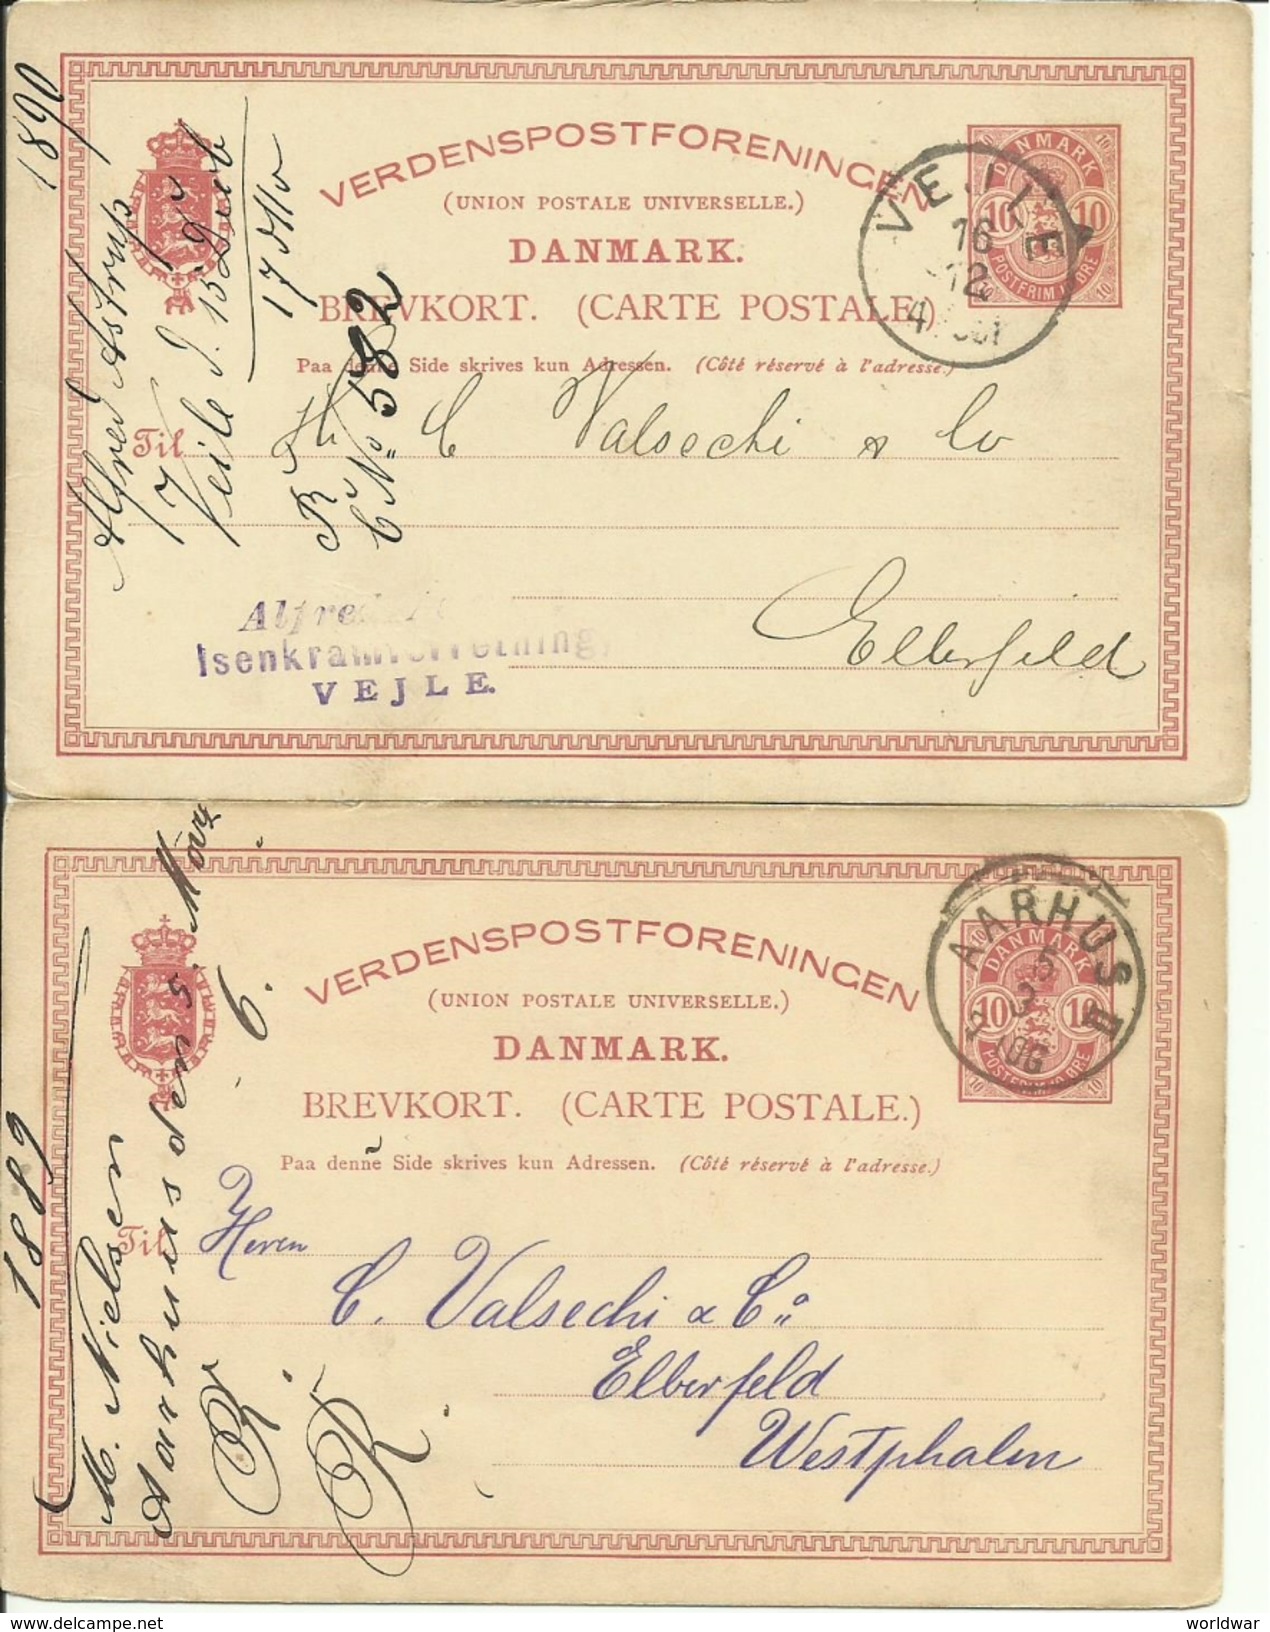 1890
Alfred Astrup
Veile
17 dto
VERDENSPOSTFORENINGEN
(UNION POSTALE UNIVERSELLE.)
DANMARK.
BREVKORT. (CARTE POSTALE.)
Paa denne Side skrives kun Adressen. (Côté réservé à l'adresse.)
DANMARK
10 10
POSTFRIM 10 ØRE
VEJLE
16
12
Til
C Valsechi & Co
Elberfeld
No 582
Alfred
Isenkramforretning,
VEJLE.
1889
M. Nielsen
Aarhuus den 5. Marz
6.
VERDENSPOSTFORENINGEN
(UNION POSTALE UNIVERSELLE.)
DANMARK.
BREVKORT. (CARTE POSTALE.)
Paa denne Side skrives kun Adressen. (Côté réservé à l'adresse.)
DANMARK
10 10
POSTFRIM 10 ØRE
AARHUS
5
3
Til
Herren
C. Valsechi & Co
Elberfeld
Westphalen
R
worldwar